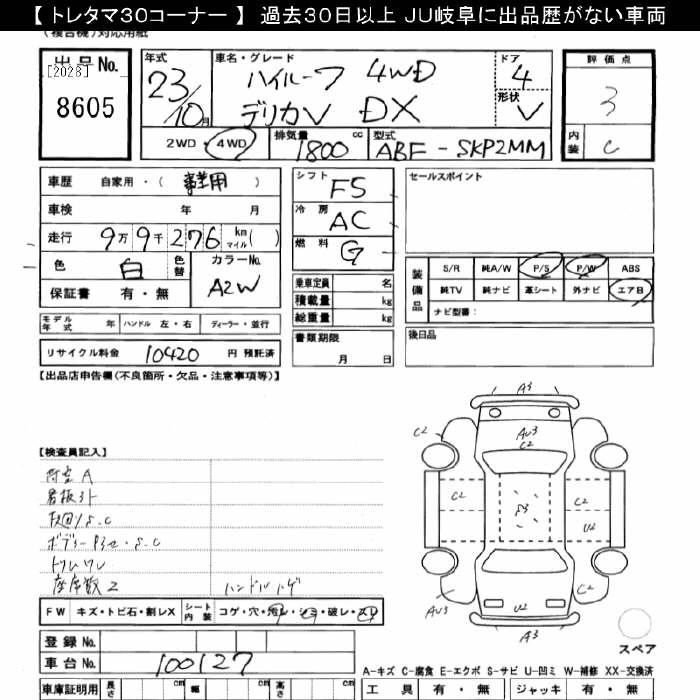 【 トレタマ30コーナー 】 過去30日以上 JU岐阜に出品歴がない車両
(複合機)対応用紙
出品No.
[2028]
8605
年式
23/10月
車名・グレード
ハイルーフ 4WD
デリカV DX
ドア
4
形状
V
評価点
3
内装
C
2WD・4WD
排気量
1800 cc
型式
ABF-SKP2MM
車歴 自家用・( 事業用 )
車検 年 月
走行 9万9千276 km マイル( )
色 白 色替
カラーNo.
A2W
保証書 有・無
シフト
F5
冷房
AC
燃料
G
乗車定員 名
積載量 kg
総重量 kg
書類期限
月 日
セールスポイント
装備品
S/R 純A/W P/S P/W ABS
純TV 純ナビ 革シート 外ナビ エアB
ナビ型番:
後日品
モデル年式 年 ハンドル 左・右 ディーラー・並行
リサイクル料金 10420 円 預託済
【出品店申告欄(不良箇所・欠品・注意事項等)】
【検査員記入】
荷室 A
看板引ト
下回りS.C
座席数 2
A3
C2
AU3
C2
C2
C2
C2
U2
C2
AU3
U2
A3
スペア
FW キズ・トビ石・割レX シート内装 コゲ・穴・汚レ・シミ・破レ・スレ
登録No.
車台No. 100127
車庫証明用 長さ cm 幅 cm 高さ cm
A-キズ C-腐食 E-エクボ S-サビ U-凹ミ W-補修 XX-交換済
工具 有・無 ジャッキ 有・無